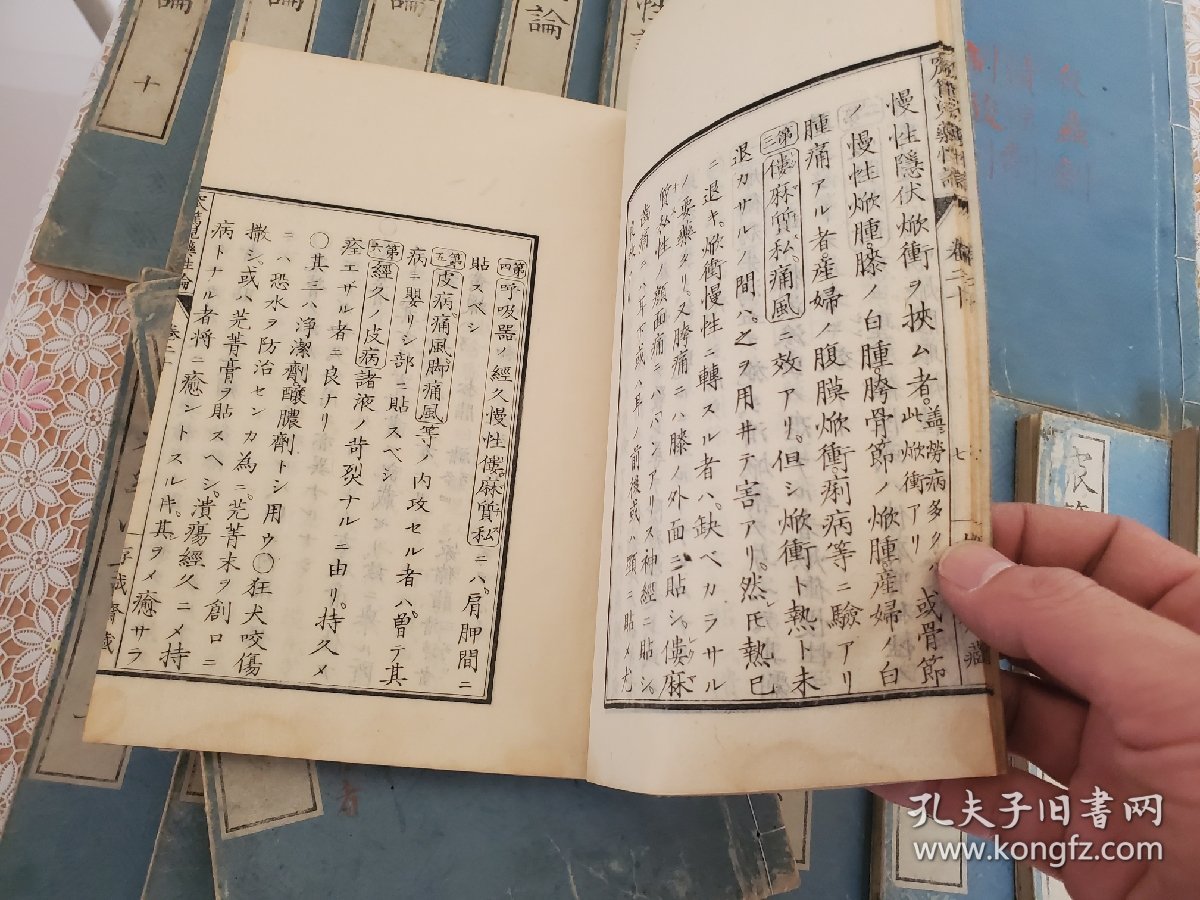 慢性隱伏焮衝ヲ挾ム者。蓋シ勞病多クハ此焮衝アリ 或骨節
ノ慢性焮腫。膝ノ白腫。胯骨節ノ焮腫。產婦ノ白
腫痛アル者。產婦ノ腹膜焮衝。痢病等ニ驗アリ
第三 僂麻質私。痛風ニ效アリ。但シ焮衝ト熱ト未
退カサルノ間ハ。之ヲ用井テ害アリ。然𪜈熱已
ニ退キ。焮衝慢性ニ轉スル者ハ。缺ベカラサル
ノ要藥タリ。又胯痛ニハ膝ノ外面ニ貼シ。僂麻
質私性ノ顏面痛ニハ
神經ニ貼シ。
齒痛ニハ耳下或ハ耳ノ前後或ハ頸ニ貼メ尤
第四 呼吸器ノ經久慢性僂麻質私ニハ。肩胛間ニ
貼スベシ
第五 皮病。痛風。脚痛風等ノ內攻セル者ハ。曽テ其
病ニ嬰リシ部ニ貼スベシ
第六 經久ノ皮病諸液ノ苛裂ナルニ由リ。持久メ
痊エザル者ニ良ナリ
○其三ハ淨潔劑釀膿劑トシ用ウ○狂犬咬傷
ニハ恐水ヲ防治センカ為ニ。芫菁末ヲ創口ニ
撒シ。或ハ芫菁膏ヲ貼スヘシ。潰瘍經久ニメ持
病トナル者將ニ癒ントスル𪜈。其ヲメ癒サラ
窊篤兒藥性論
卷二十
七
藥性論
卷二
存誠齋藏
論
十
論
論
孔夫子旧书网
www.kongfz.com